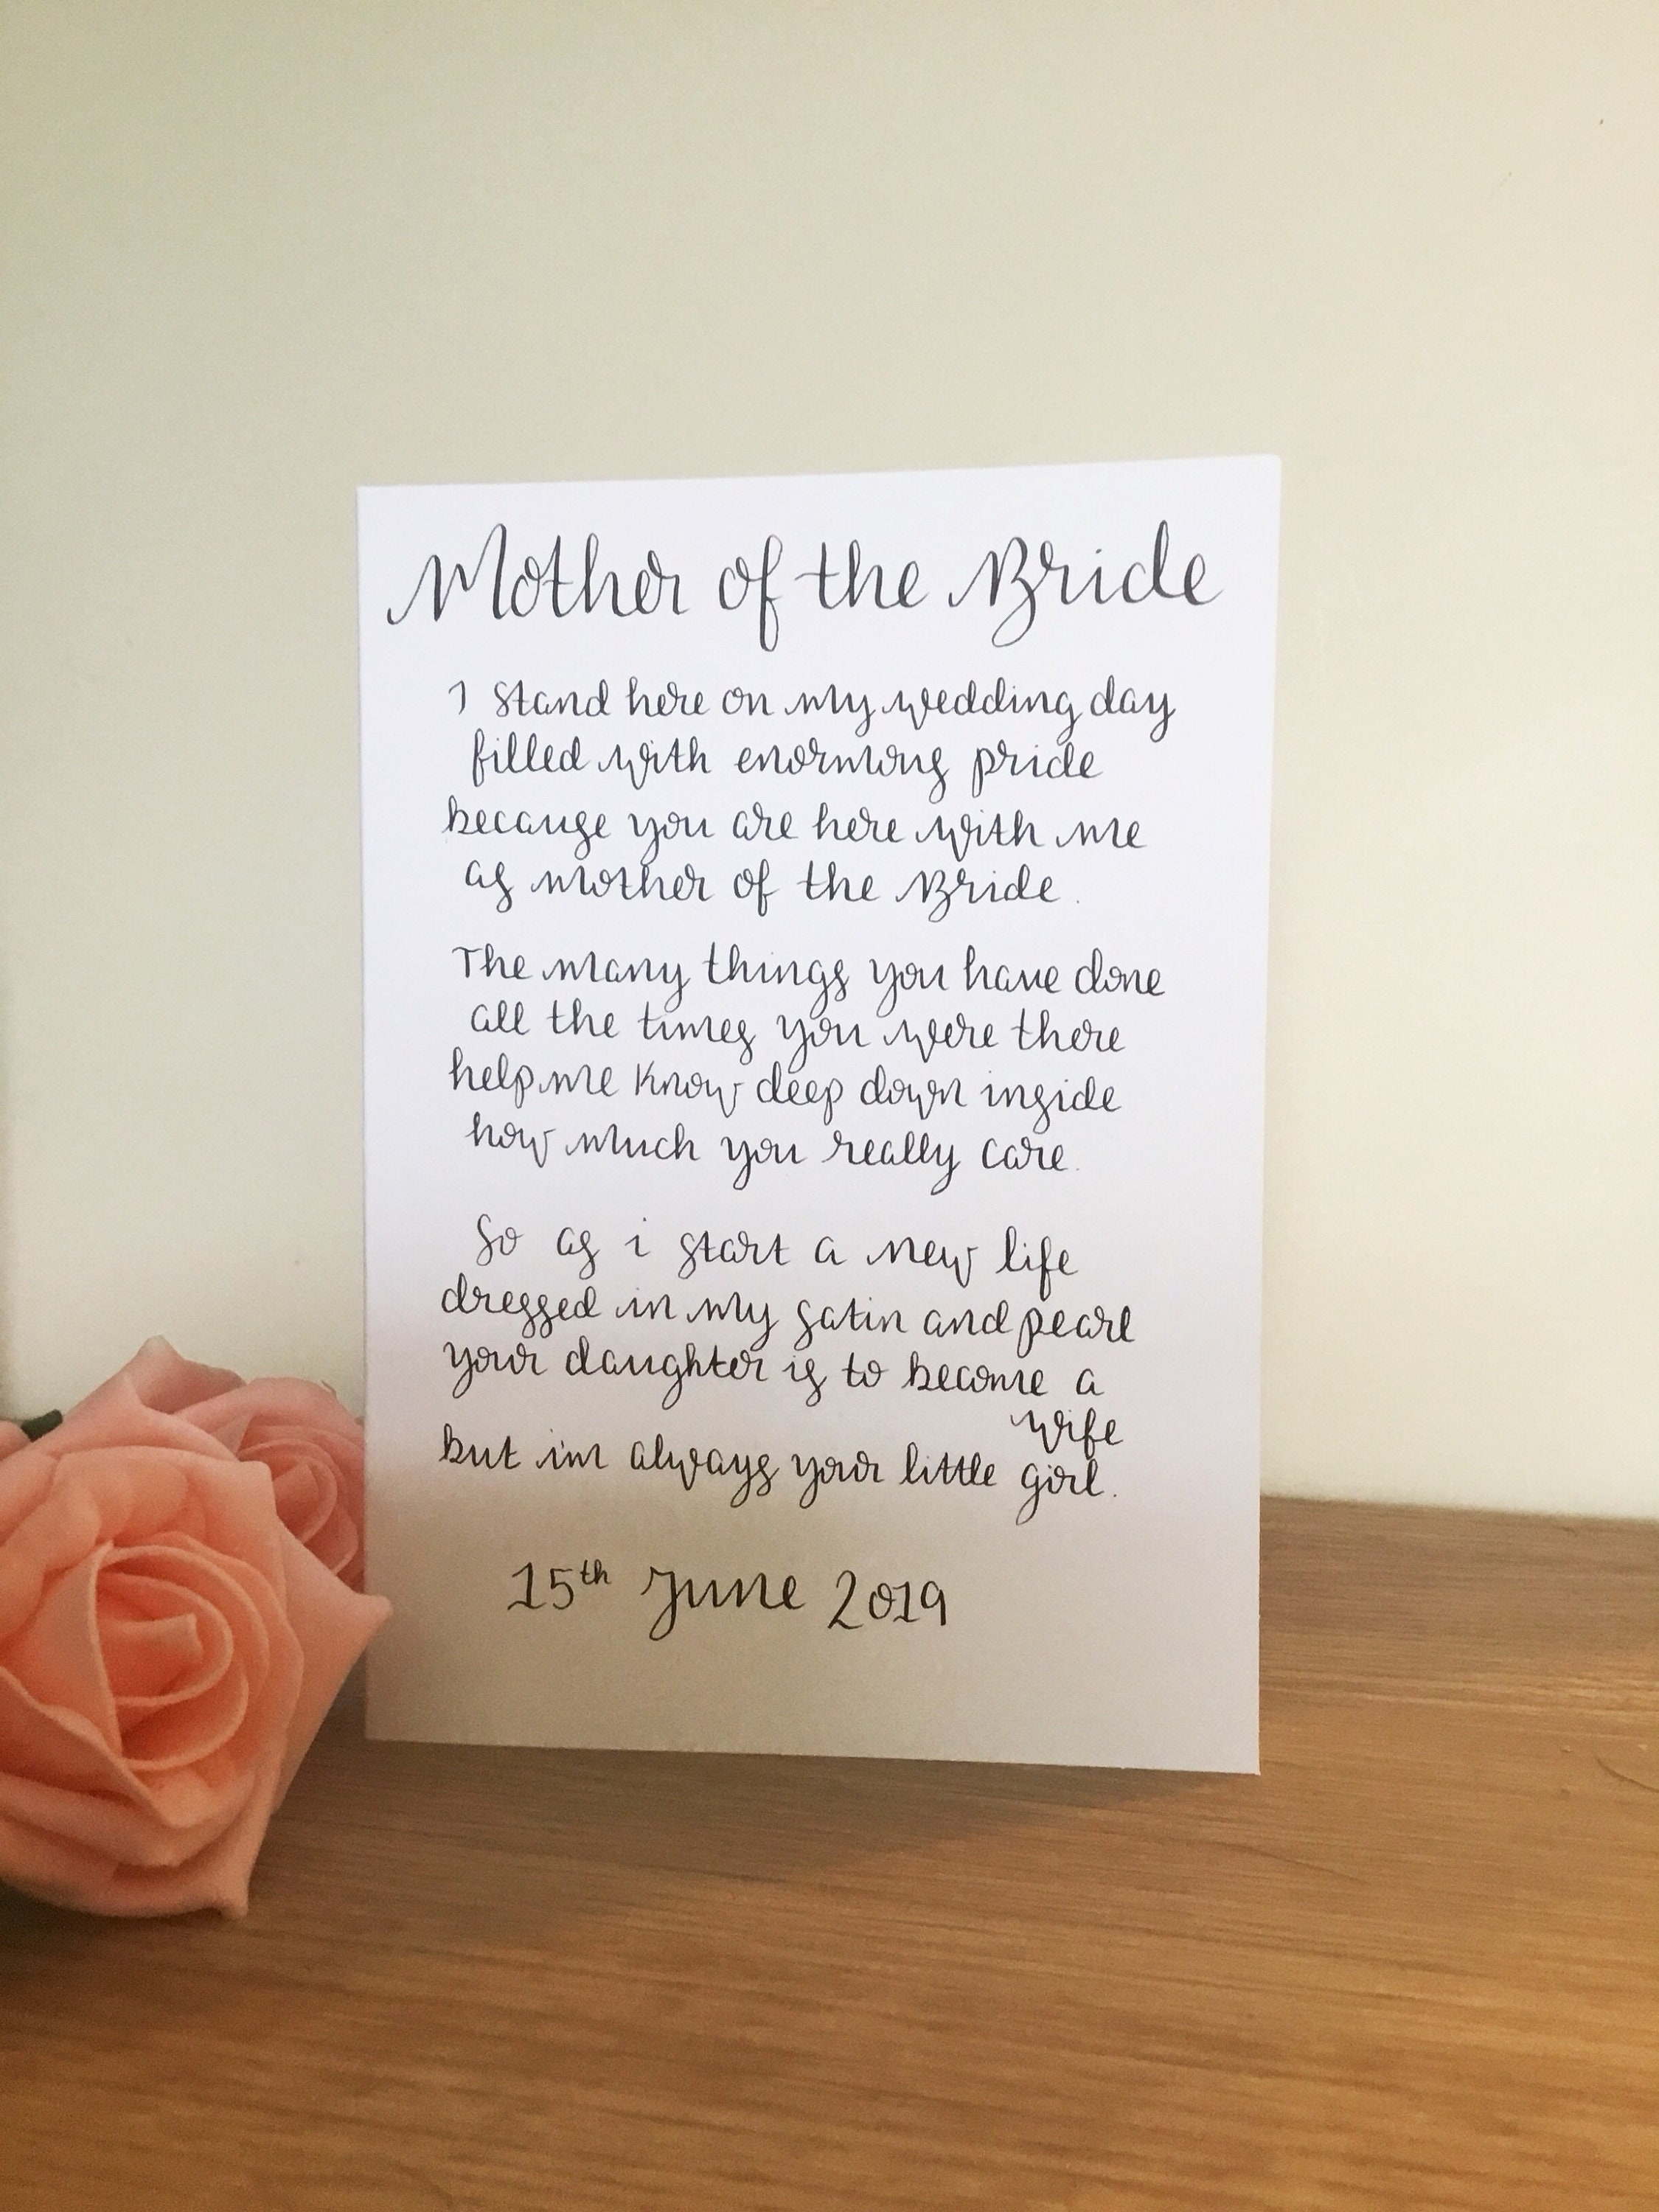 Mother of the Bride
I stand here on my wedding day
filled with enormous pride
because you are here with me
as mother of the Bride.
The many things you have done
all the times you were there
help me know deep down inside
how much you really care.
So as i start a new life
dressed in my satin and pearl
your daughter is to become a
wife
but im always your little girl.
15th June 2019